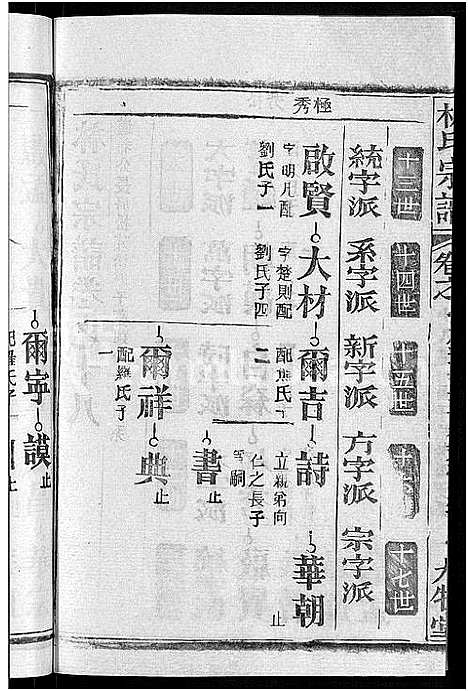 宗譜
卷之
十三世
十四世
十五世
十七世
統字派
系字派
新字派
方字派
宗字派
極秀
啟賢
字明凡配
劉氏子一
大材
字楚則配
劉氏子四
爾吉
配熊氏子
二
詩
立親弟向
仁之長子
嗣
華朝
止
書
止
爾祥
配羅氏子
一
典
止
爾寧
謨
止